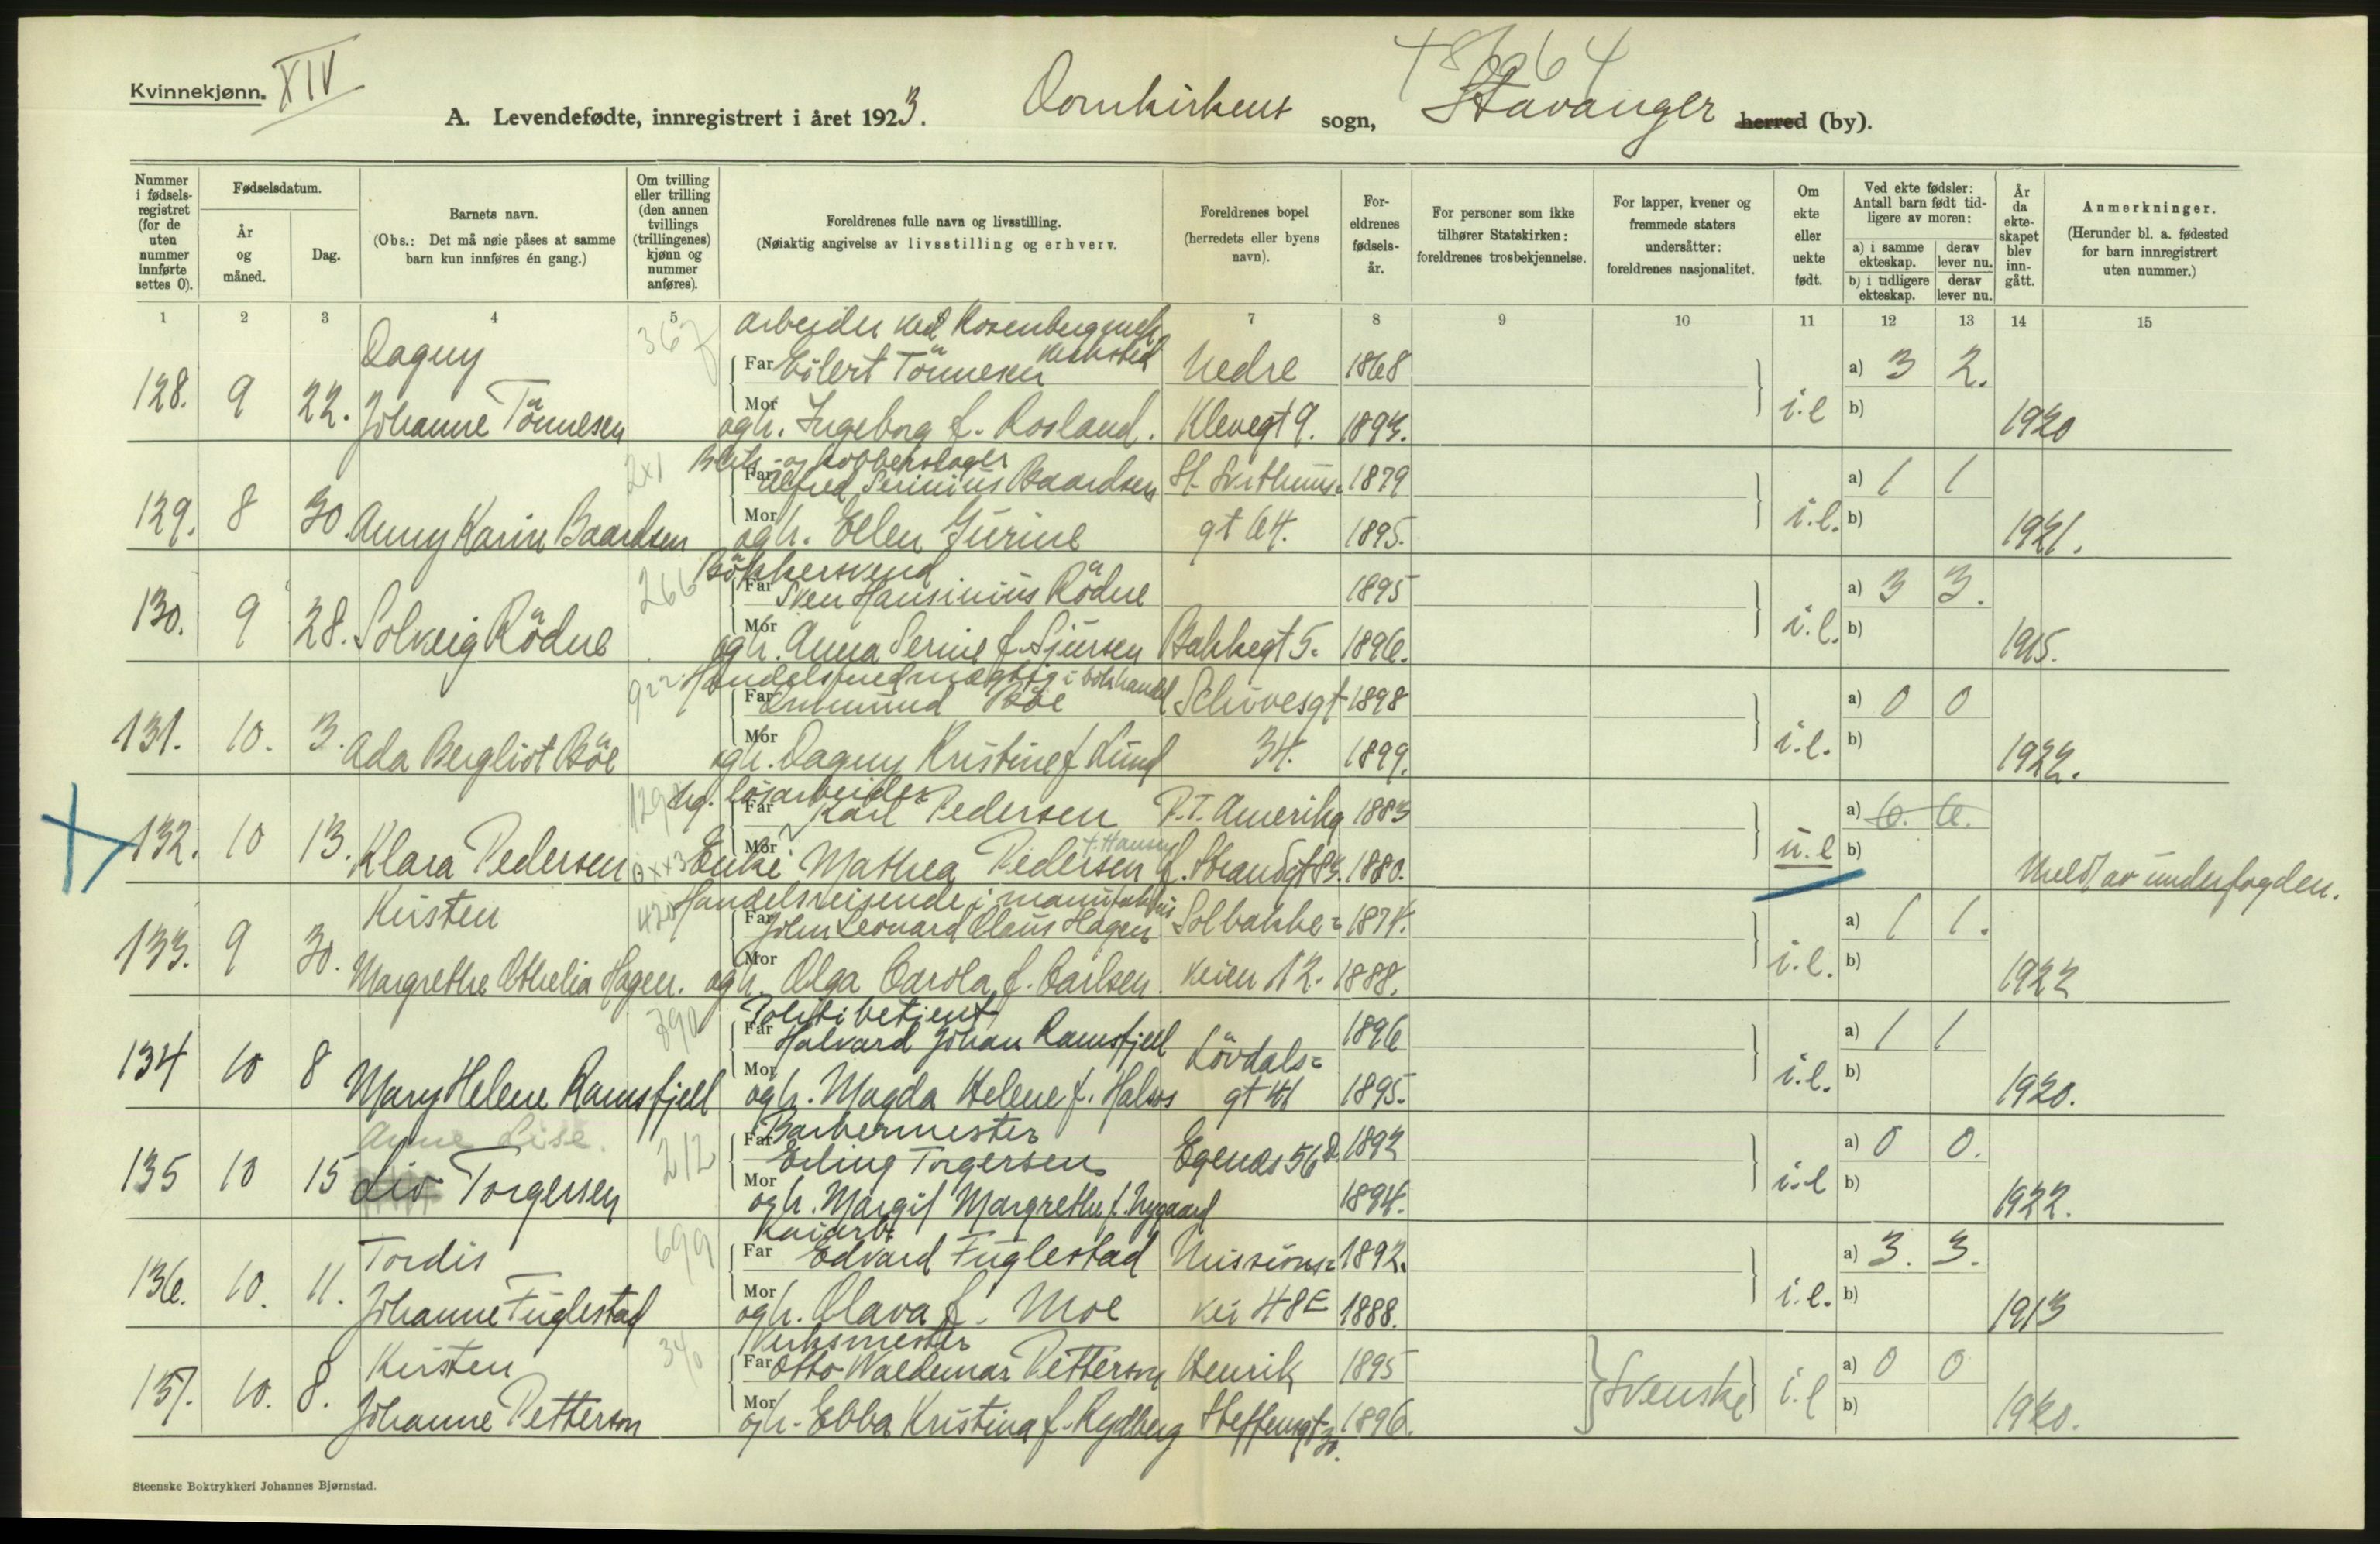 Kvinnekjønn. XIV
48664
A. Levendefødte, innregistrert i året 1923. Domkirkens sogn, Stavanger herred (by).
Nummer i fødselsregistret (for de uten nummer innførte settes 0).
Fødselsdatum.
År og måned.
Dag.
Barnets navn.
(Obs.: Det må nøie påses at samme barn kun innføres én gang.)
Om tvilling eller trilling (den annen tvillings (trillingenes) kjønn og nummer anføres).
Foreldrenes fulle navn og livsstilling.
(Nøiaktig angivelse av livsstilling og erhverv.
Foreldrenes bopel (herredets eller byens navn).
Foreldrenes fødselsår.
For personer som ikke tilhører Statskirken: foreldrenes trosbekjennelse.
For lapper, kvener og fremmede staters undersåtter: foreldrenes nasjonalitet.
Om ekte eller uekte født.
Ved ekte fødsler: Antall barn født tidligere av moren:
a) i samme ekteskap. derav lever nu.
b) i tidligere ekteskap. derav lever nu.
År da ekteskapet blev inngått.
Anmerkninger.
(Herunder bl. a. fødested for barn innregistrert uten nummer.)
1 2 3 4 5 7 8 9 10 11 12 13 14 15
367 arbeider ved Rosenberg mek. verksted
Dagny Far Eilert Tönnesen Nedre 1868 a) 3 2.
128. 9 22. Johanne Tönnesen Mor og h. Ingeborg f. Rosland. Klevegt 9. 1893. i.e b) 1920
2x1 Blik- og kobberslager
Far Alfred Serinius Baardsen St. Svithuns- 1879 a) 1 1
129. 8 30. Anny Karin Baardsen Mor og h. Ellen Gurine gt 64. 1895. i.e. b) 1921.
266 Bökkersvend
Far Sven Hansinius Rödne 1895 a) 3 3.
130. 9 28. Solveig Rödne Mor og h. Anna Serine f. Sjursen Bakkegt 5. 1896. i.e. b) 1915.
922 Handelsfuldmægtig i
Far Böe Schivesgt 1898 a) 0 0
131. 10. 3. Ada Bergliot Böe Mor og h. Dagny Kristine f Lund 34. 1899. i.e. b) 1922.
lösarbeider
Far Karl Pedersen P.T. Amerika 1883 a) 6. 6.
132. 10 13. Klara Pedersen Mor Enke Mathea Pedersen f. Hansen Strandgt 83. 1880. u.e b) Meldt av underfogden.
420 Handelsreisende i manufaktur
Kirsten Far John Leonard Claus Hagen Solbakke- 1874. a) 1 1.
133. 9 30. Margrethe Othelia Hagen. Mor og h. Olga Carola f. Carlsen. veien 12. 1888. i.e. b) 1922
390 Politibetjent
Far Halvard Johan Ramsfjell Lövdals- 1896 a) 1 1
134 10 8 Mary Helene Ramsfjell Mor og h. Magda Helene f. Halsos gt 41 1895. i.e. b) 1920.
Anne Lise. 212 Barbermester
Far Erling Torgersen Egenes 56 D. 1892 a) 0 0.
135 10 15 Liv Torgersen Mor og h. Margit Margrethe f. Nygaard 1894. i.e b) 1922.
699 Kaiarb.
Tordis Far Edvard Fuglestad Missions- 1892. a) 3. 3.
136. 10. 11. Johanne Fuglestad Mor og h. Olava f. Moe vei 48E 1888. i.e. b) 1913
340 Verksmester
Kirsten Far Otto Waldemar Petterson Henrik 1895 Svenske a) 0 0
137. 10. 8. Johanne Petterson Mor og h. Ebba Kristina f. Rydberg Steffensgt 30. 1896. i.e b) 1920.
Steenske Boktrykkeri Johannes Bjørnstad.